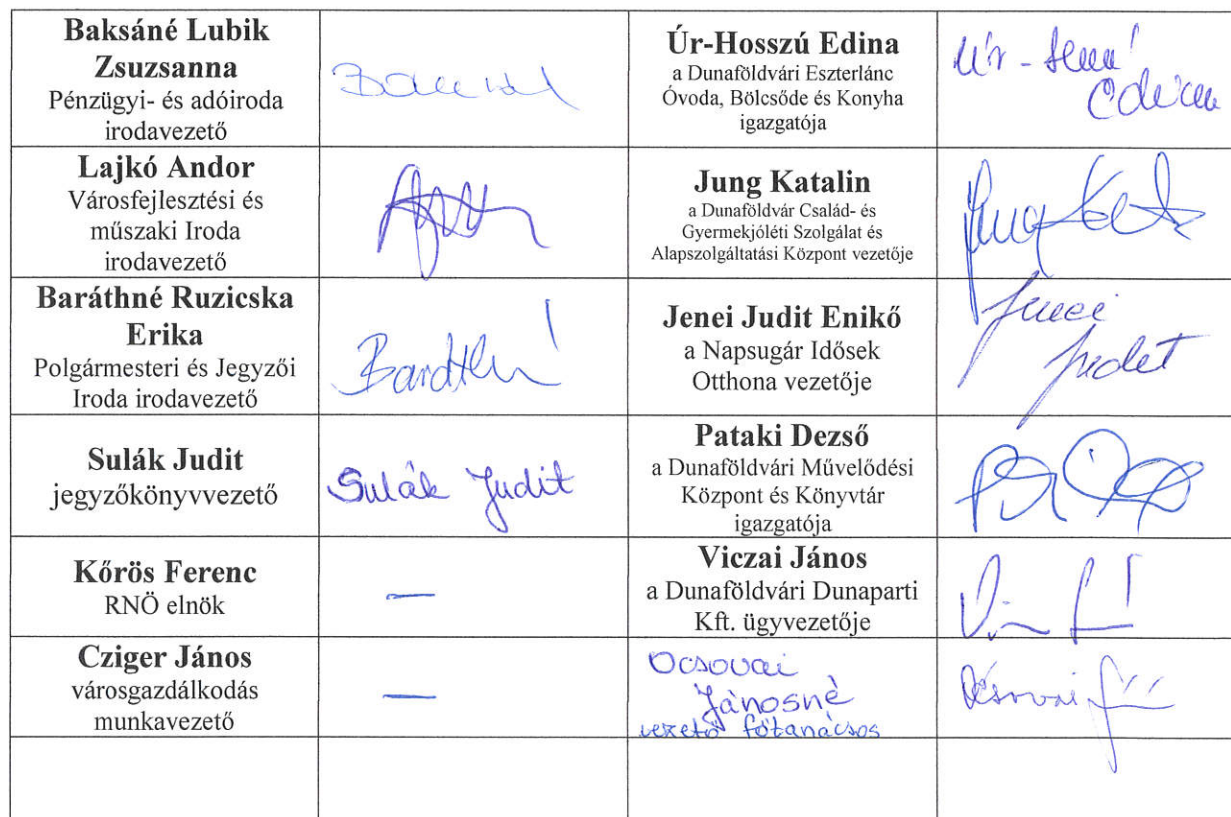 Baksáné Lubik
Zsuzsanna
Pénzügyi- és adóiroda
irodavezető
Úr-Hosszú Edina
a Dunaföldvári Eszterlánc
Óvoda, Bölcsőde és Konyha
igazgatója
Lajkó Andor
Városfejlesztési és
műszaki Iroda
irodavezető
Jung Katalin
a Dunaföldvár Család- és
Gyermekjóléti Szolgálat és
Alapszolgáltatási Központ vezetője
Baráthné Ruzicska
Erika
Polgármesteri és Jegyzői
Iroda irodavezető
Jenei Judit Enikő
a Napsugár Idősek
Otthona vezetője
Jenei
Judit
Sulák Judit
jegyzőkönyvvezető
Sulák Judit
Pataki Dezső
a Dunaföldvári Művelődési
Központ és Könyvtár
igazgatója
Kőrös Ferenc
RNÖ elnök
—
Viczai János
a Dunaföldvári Dunaparti
Kft. ügyvezetője
Cziger János
városgazdálkodás
munkavezető
—
Ocsovai
Jánosné
vezető főtanácsos